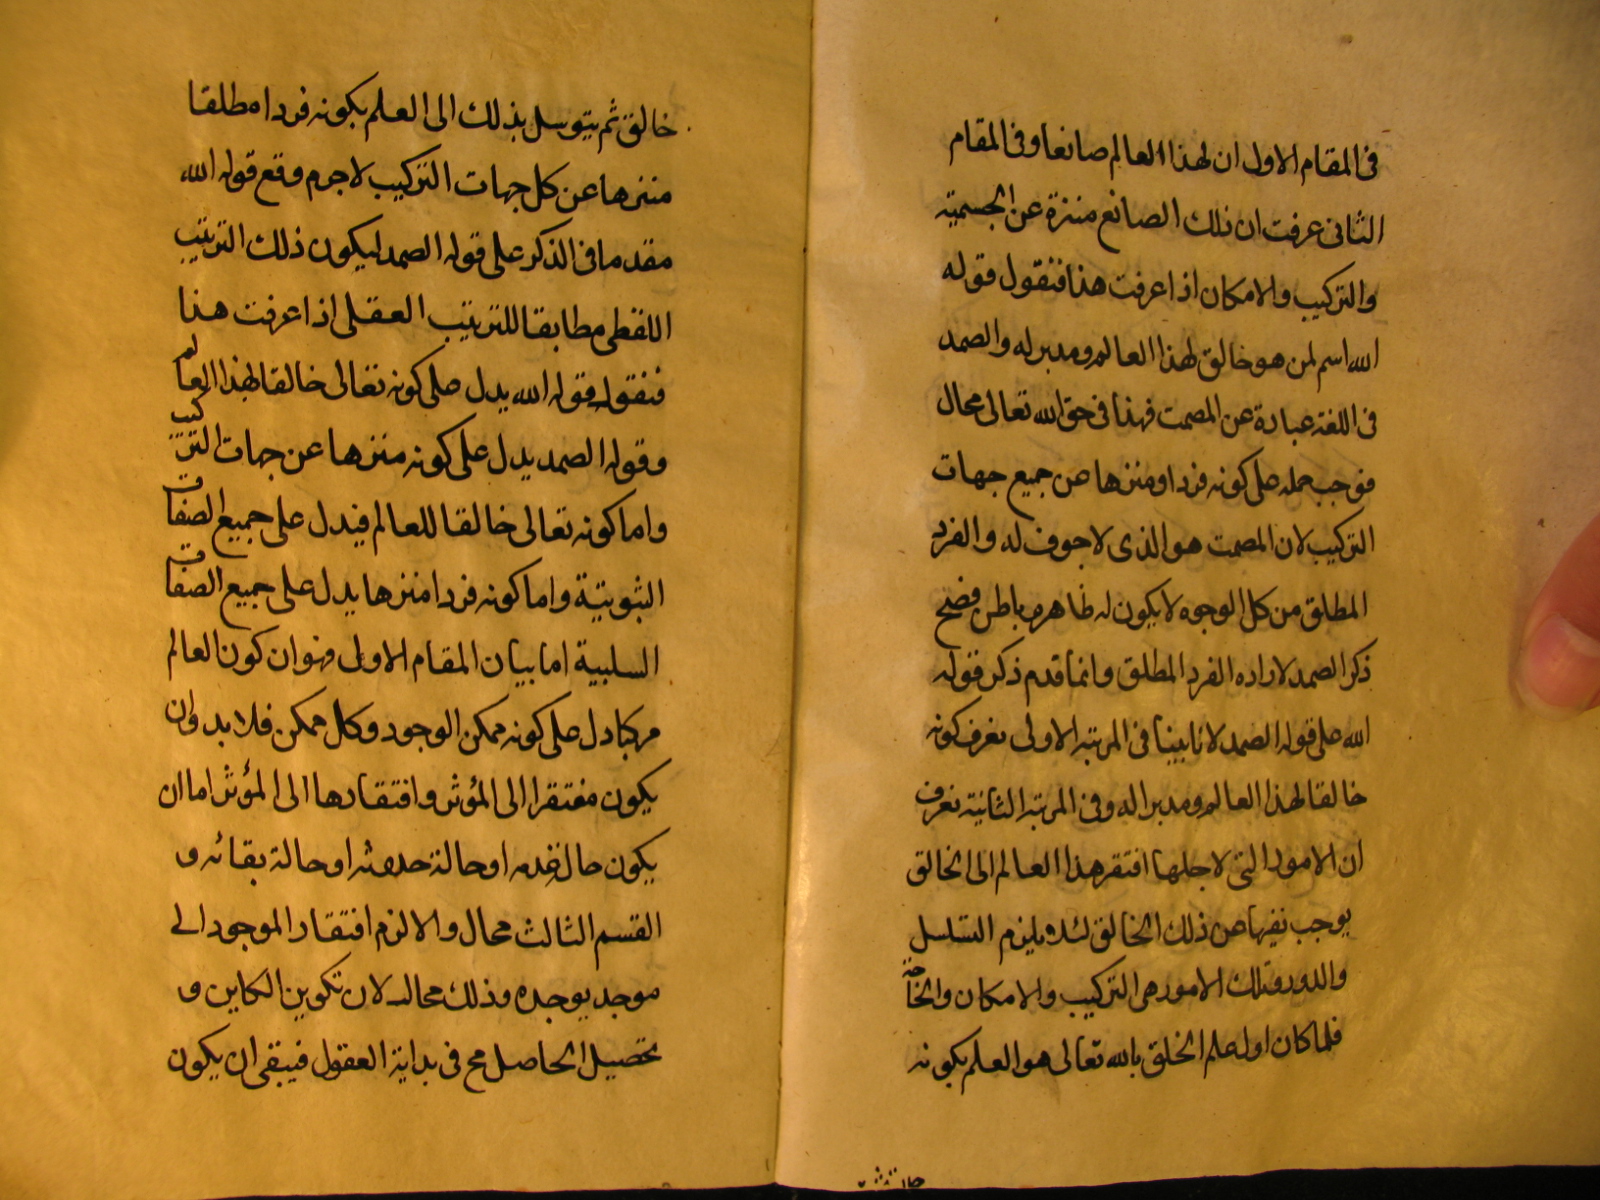 فى المقام الاول ان لهذا العالم صانعا وفى المقام
الثانى عرفت ان ذلك الصانع منزة عن الجسمية
والتركيب والامكان اذا عرفت هذا فنقول قوله
الله اسم لمن هو خالق لهذا العالم ومدبر له والصمد
فى اللغة عبارة عن المصمت فهذا فى حق الله تعالى محال
فوجب حمله على كونه فردا ومنزها عن جميع جهات
التركيب لان المصمت هو الذى لا جوف له والفرد
المطلق من كل الوجوه لا يكون له ظاهر وباطن فصح
ذكر الصمد لاراده الفرد المطلق وانما قدم ذكر قوله
الله على قوله الصمد لانا بينا فى المرتبة الاولى نعرف كونه
خالقا لهذا العالم ومدبرا له وفى المرتبة الثانية نعرف
ان الامور التى لاجلها افتقر هذا العالم الى الخالق
يوجب نفيها عن ذلك الخالق لئلا يلزم التسلسل
والدور وتلك الامور هى التركيب والامكان والحاجة
فلما كان اول علم الخلق بالله تعالى هو العلم بكونه
خالق ثم يتوسل بذلك الى العلم بكونه فردا مطلقا
منزها عن كل جهات التركيب لا جرم وقع قوله الله
مقدما فى الذكر على قوله الصمد ليكون ذلك الترتيب
اللفظى مطابقا للترتيب العقلى اذا عرفت هذا
فنقول فقوله الله يدل على كونه تعالى خالقا لهذا العالم
وقوله الصمد يدل على كونه منزها عن جهات التركيب
واما كونه تعالى خالقا للعالم فيدل على جميع الصفات
الثبوتية واما كونه فردا منزها يدل على جميع الصفات
السلبية اما بيان المقام الاول فهو ان كون العالم
مركبا دل على كونه ممكن الوجود وكل ممكن فلا بد وان
يكون مفتقرا الى المؤثر وافتقارها الى المؤثر اما ان
يكون حال عدمه او حالة حدوثه او حالة بقائه و
القسم الثالث محال والا لزم افتقار الموجود الى
موجد يوجده وذلك محال لان تكوين الكاين و
تحصيل الحاصل مح فى بداية العقول فيبقى ان يكون